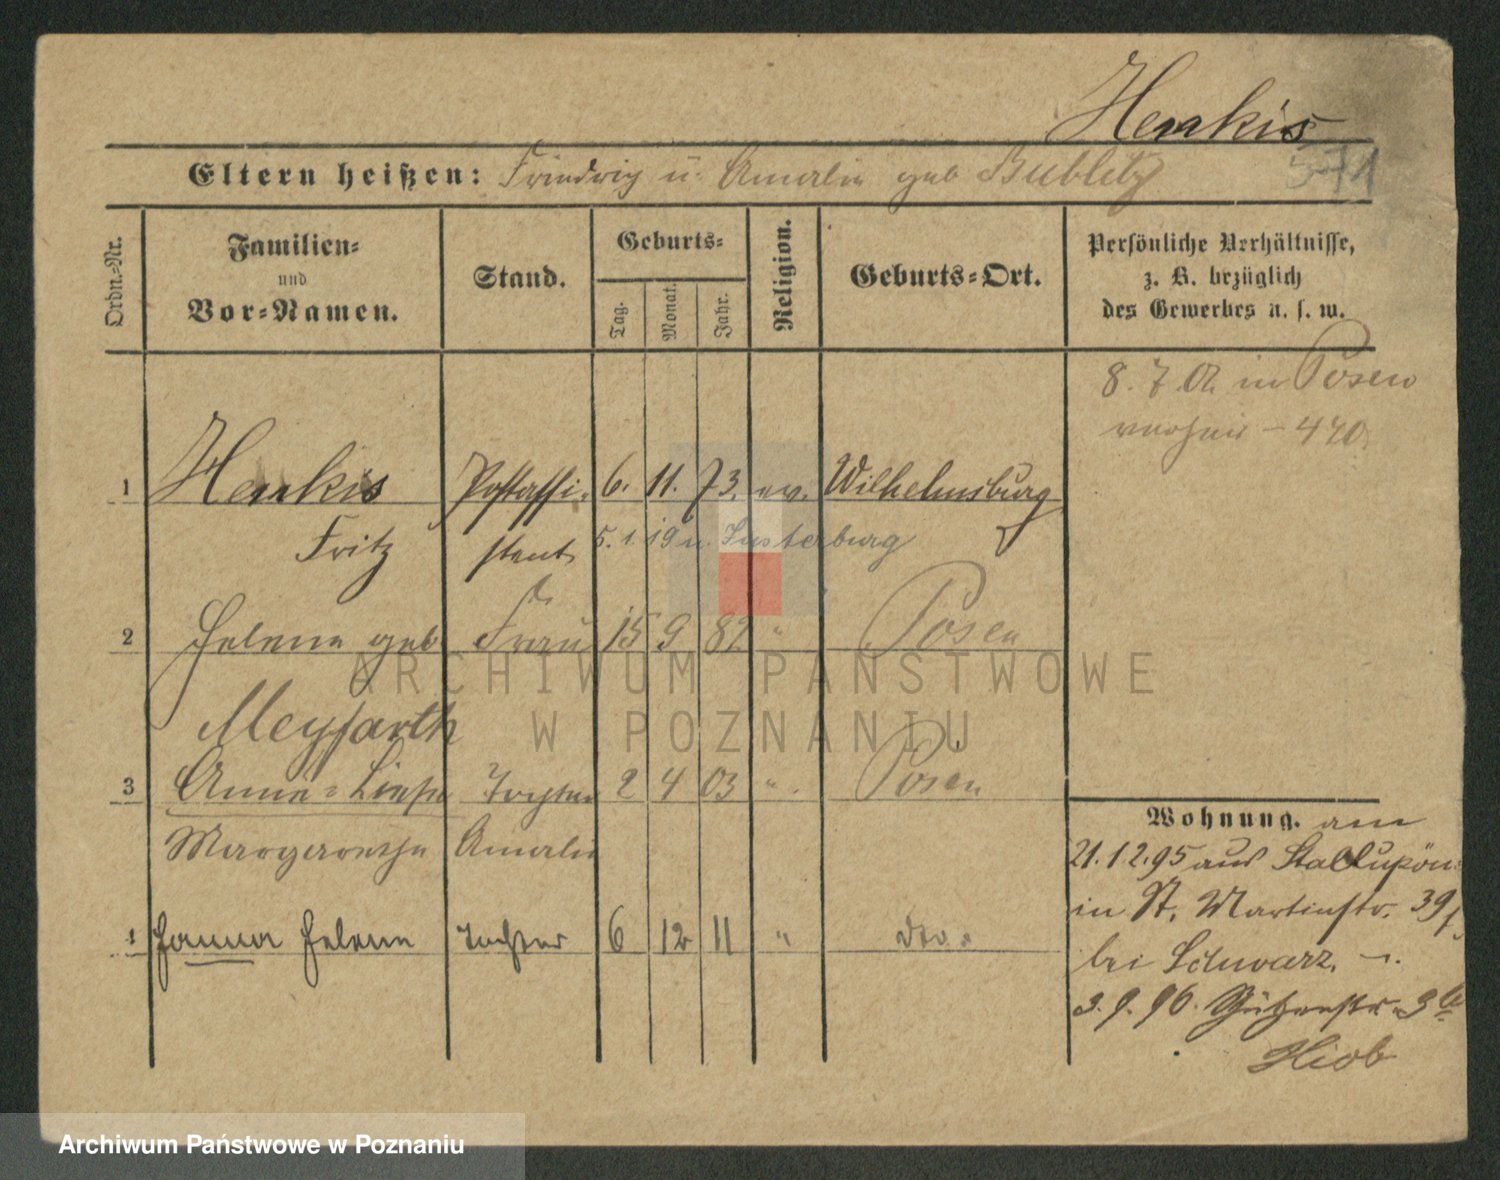 Henkis
571
Eltern heißen: Friedrich u. Amalie geb Bublitz
Ordn.-Nr.
Familien-
und
Vor-Namen.
Stand.
Geburts-
Tag. Monat. Jahr.
Religion.
Geburts-Ort.
Persönliche Verhältnisse,
z. B. bezüglich
des Gewerbes u. s. w.
8. 7. 02 in Posen
verheir – 440
1 Henkis Postassi- 6. 11. 73. ev. Wilhelmsburg
Fritz stent 5. 1. 19 n. Insterburg
2 Helene geb Frau 15 9 82 " Posen
Meyfarth
3 Anna-Liese Tochter 2 4 03 " Posen
Margarethe Amalie
4 Hanna Helene Tochter 6 12 11 " dto.
Wohnung. am
21. 12. 95 aus Stallupön
in St. Martinstr. 39
bei Schwarz.
3. 9. 96. Schützenstr. 3
Hiob
ARCHIWUM PAŃSTWOWE
W POZNANIU
Archiwum Państwowe w Poznaniu